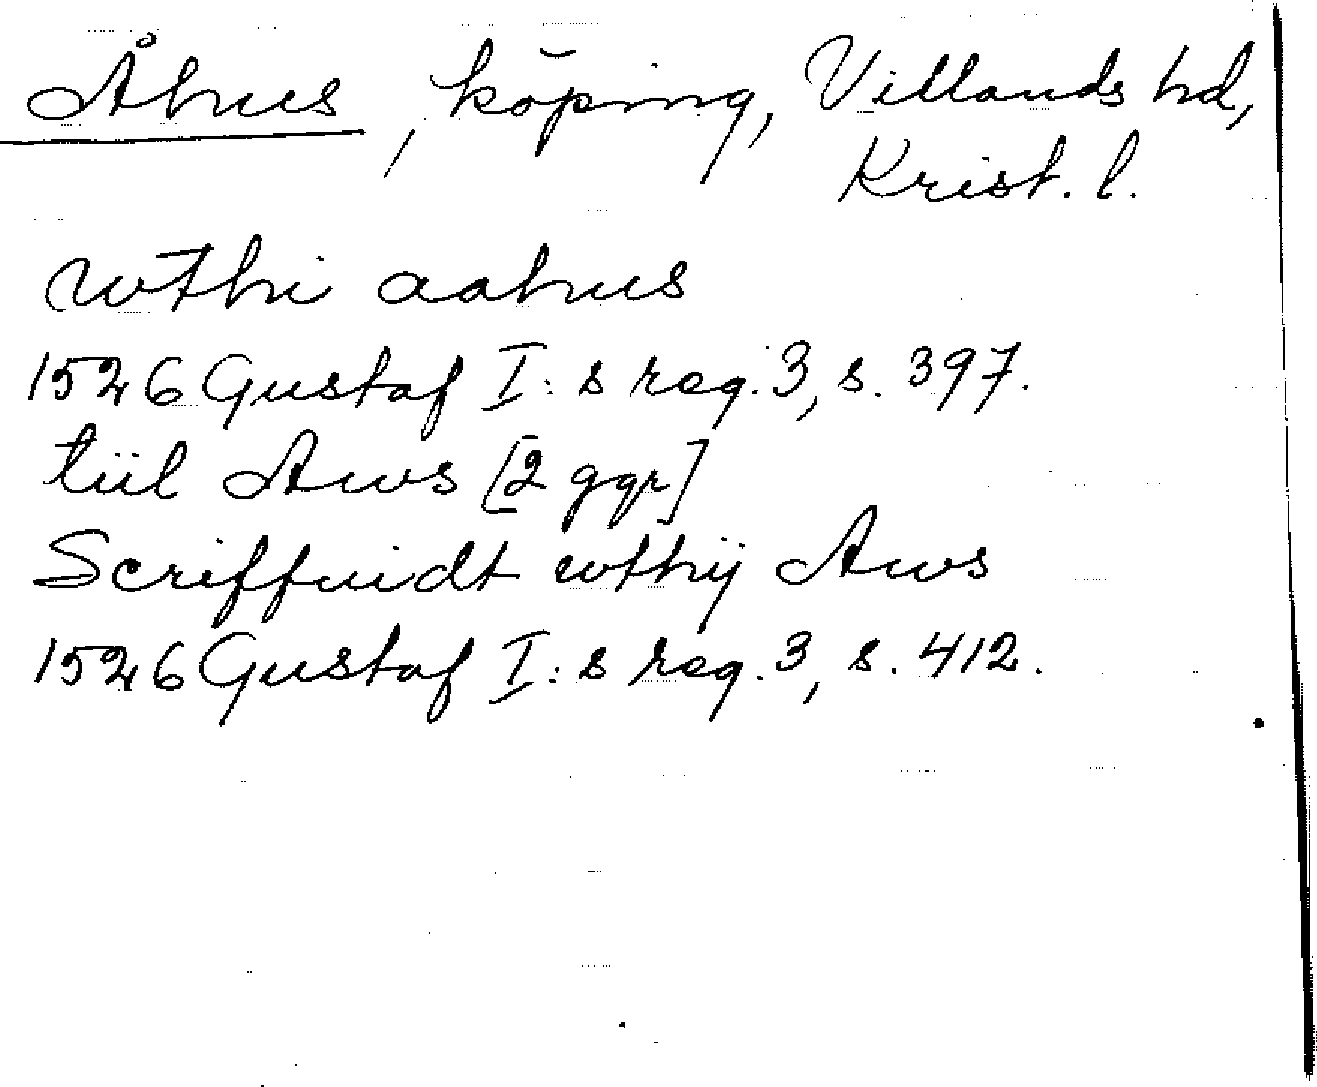 Åhus, köping, Villands hd,
Krist. l.
wthi aahus
1526 Gustaf I:s reg. 3, s. 397.
tiil Aws [2 ggr]
Scriffuidt wthij Aws
1526 Gustaf I:s reg. 3, s. 412.